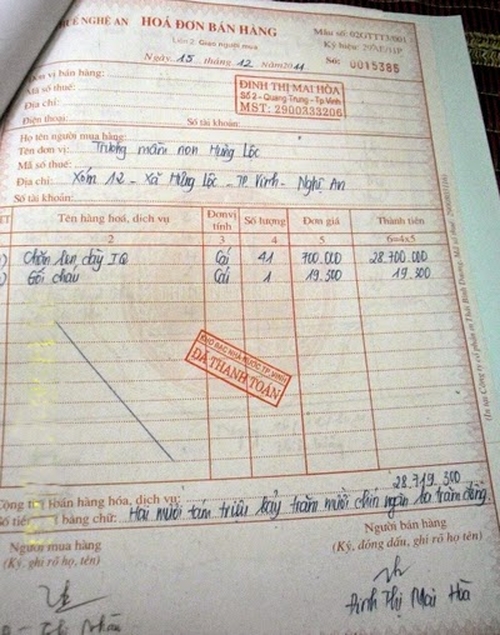 HUẾ NGHỆ AN
HOÁ ĐƠN BÁN HÀNG
Mẫu số: 02GTTT3/001
Liên 2: Giao người mua
Ký hiệu:
Ngày 15 tháng 12 năm 2011
Số: 0015385
Đơn vị bán hàng:
Mã số thuế:
Địa chỉ:
Điện thoại:
Số tài khoản:
ĐINH THỊ MAI HÒA
Số 2 - Quang Trung - Tp.Vinh
MST: 2900333206
Họ tên người mua hàng:
Tên đơn vị: Trường mầm non Hưng Lộc
Mã số thuế:
Địa chỉ: Xóm 12 - Xã Hưng Lộc - TP Vinh - Nghệ An
Số tài khoản:
TT Tên hàng hoá, dịch vụ Đơn vị tính Số lượng Đơn giá Thành tiền
2 3 4 5 6=4x5
Chăn len dày IQ Cái 41 700.000 28.700.000
Gối cháu Cái 1 19.300 19.300
KHO BẠC NHÀ NƯỚC TP.VINH
ĐÃ THANH TOÁN
Cộng tiền bán hàng hóa, dịch vụ: 28.719.300
Số tiền bằng chữ: Hai mươi tám triệu bảy trăm mười chín ngàn ba trăm đồng
Người mua hàng
(Ký, ghi rõ họ, tên)
Người bán hàng
(Ký, đóng dấu, ghi rõ họ, tên)
Đinh Thị Mai Hòa